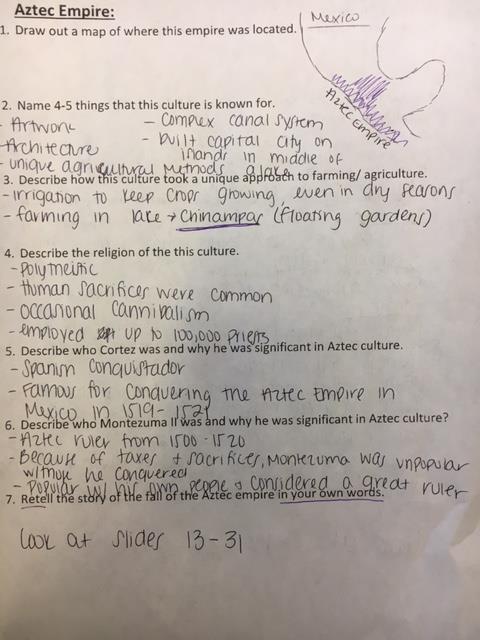 Aztec Empire:
1. Draw out a map of where this empire was located.
Mexico
Aztec Empire
2. Name 4-5 things that this culture is known for.
- Artwork
- Architecture
- unique agricultural methods
- Complex canal system
- built capital city on
islands in middle of
a lake
3. Describe how this culture took a unique approach to farming/ agriculture.
- irrigation to keep crops growing, even in dry seasons
- farming in lake → Chinampas (floating gardens)
4. Describe the religion of the this culture.
- polytheistic
- Human sacrifices were common
- occasional cannibalism
- employed up to 100,000 priests
5. Describe who Cortez was and why he was significant in Aztec culture.
- Spanish Conquistador
- Famous for conquering the Aztec Empire in
Mexico in 1519-1521
6. Describe who Montezuma II was and why he was significant in Aztec culture?
- Aztec ruler from 1500-1520
- Because of taxes + sacrifices, Montezuma was unpopular
w/those he conquered
- Popular w/ his own people & considered a great ruler
7. Retell the story of the fall of the Aztec empire in your own words.
look at slides 13-31